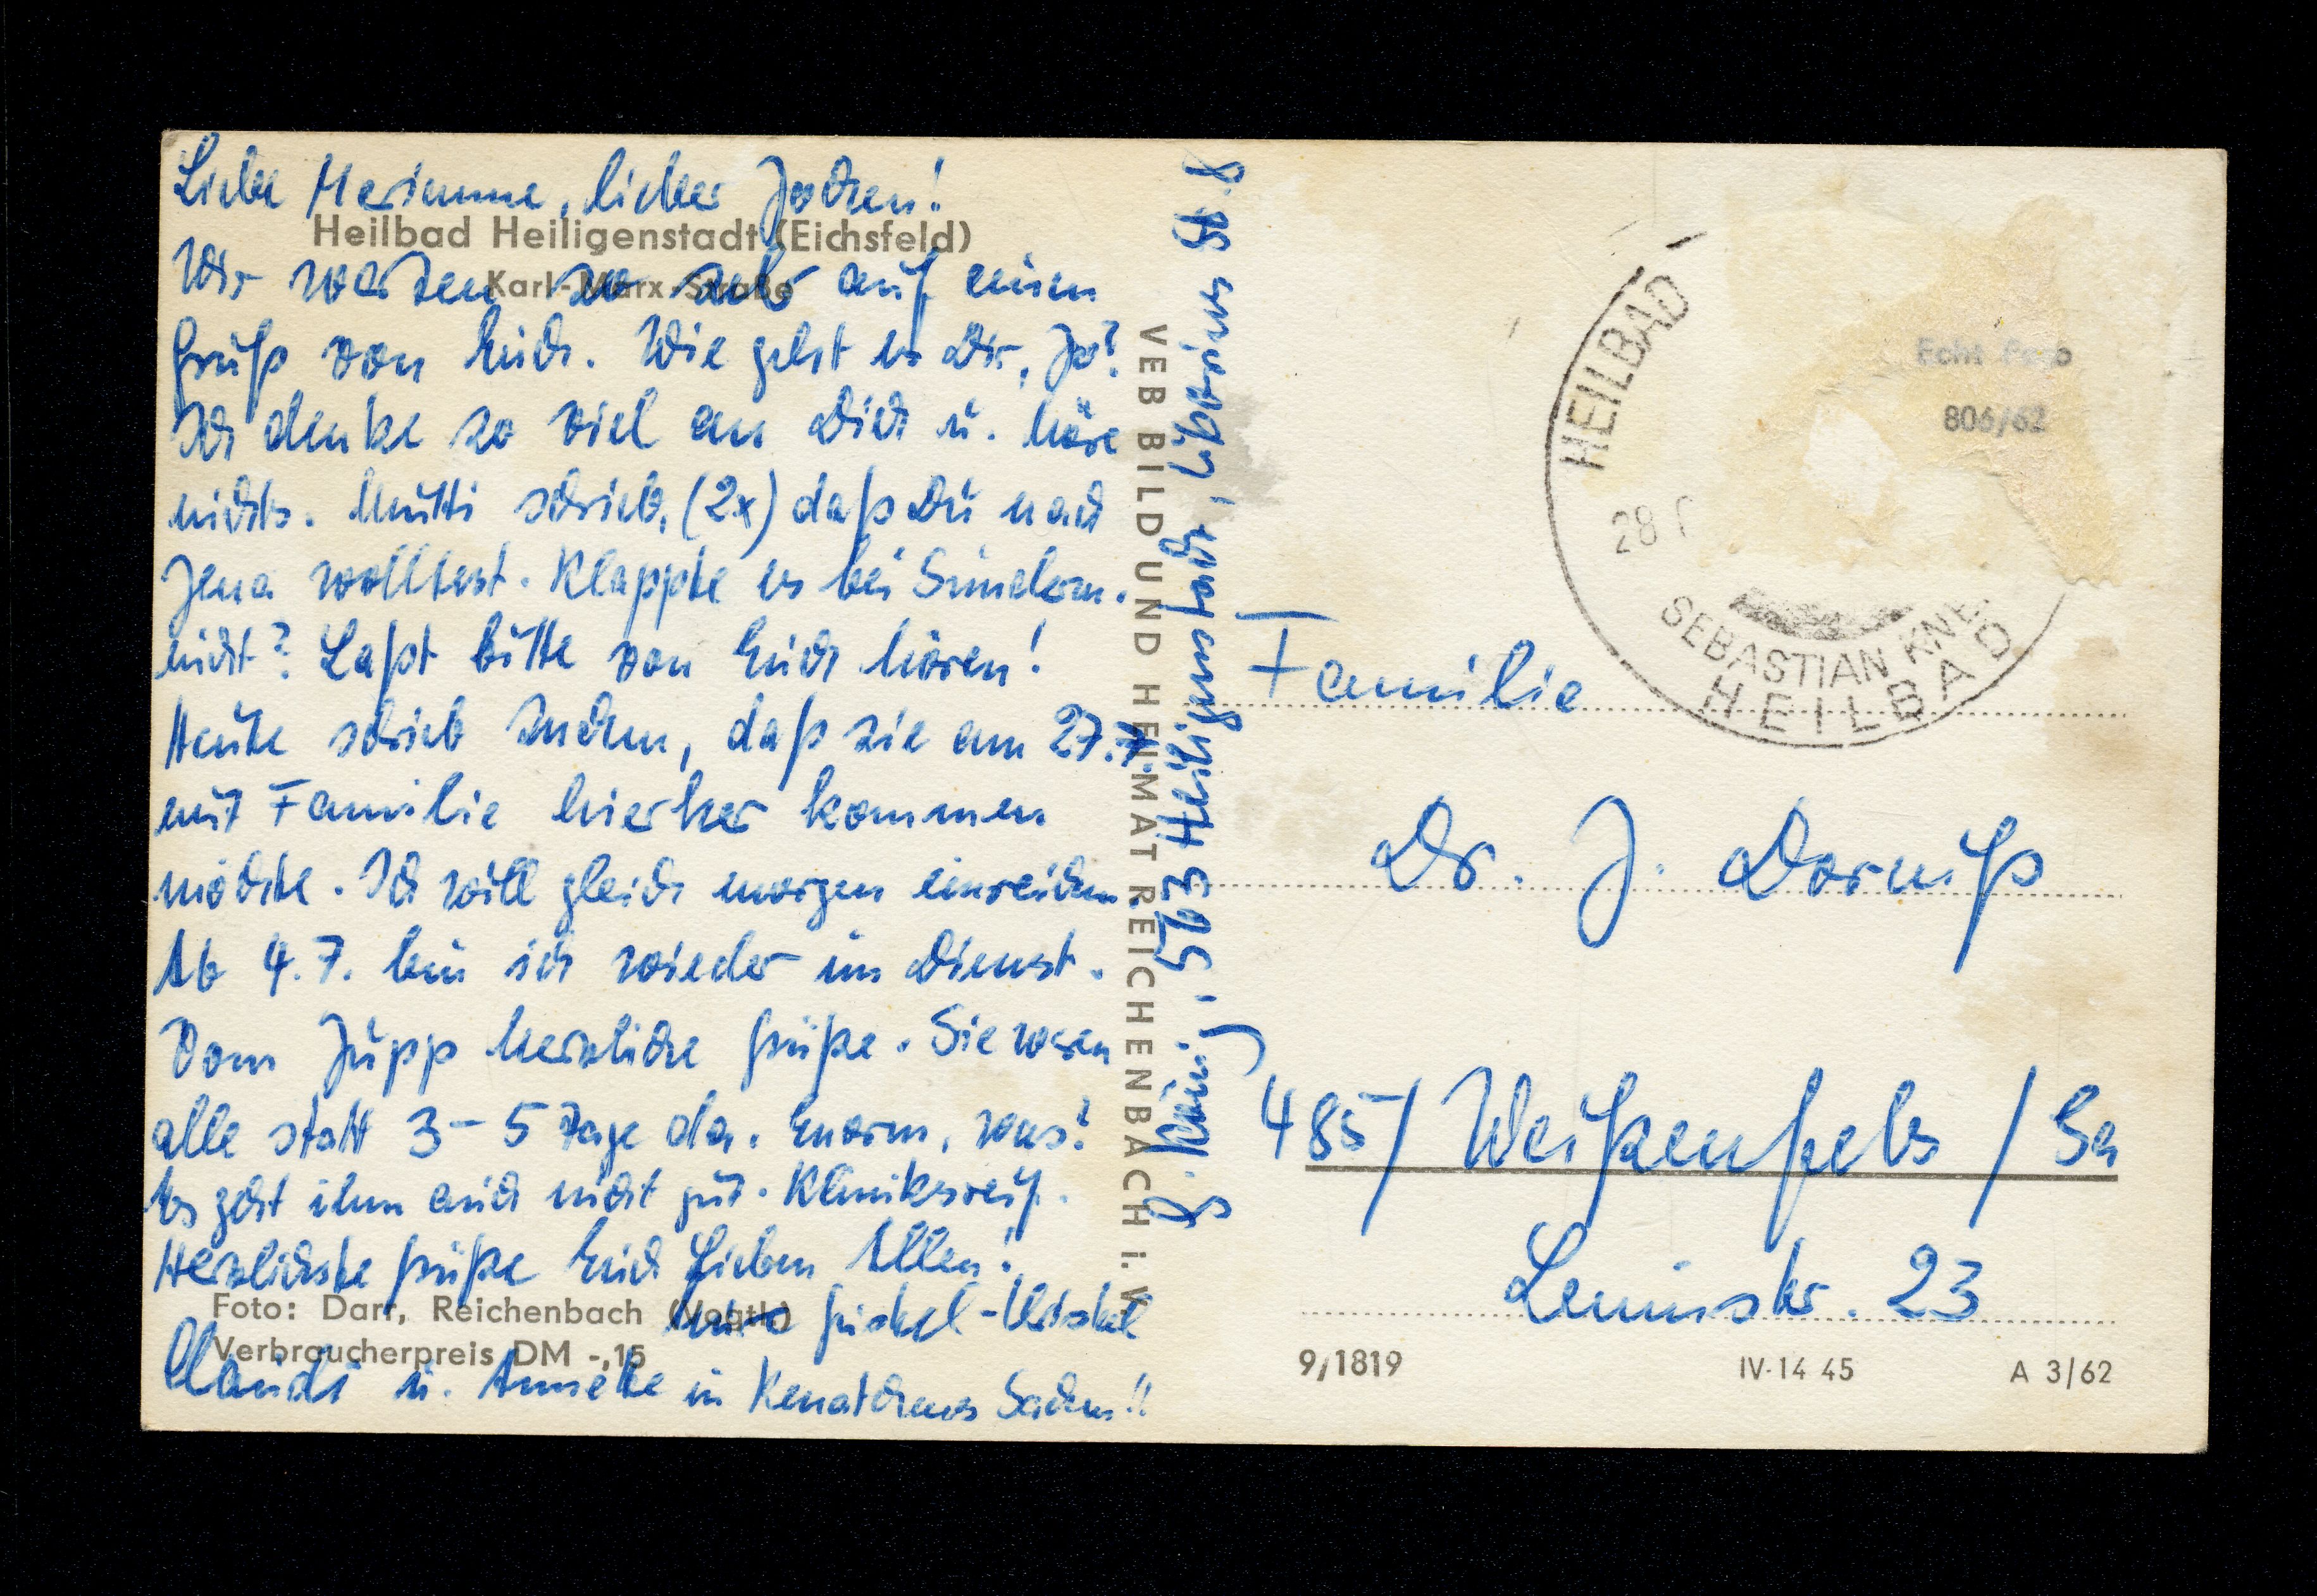 Liebe Marianne, lieber Jochen!
Heilbad Heiligenstadt (Eichsfeld)
Karl-Marx-Straße
Wir warten so sehr auf einen
Gruß von Euch. Wie geht es Dir, Jo?
Ich denke so viel an Dich u. höre
nichts. Mutti schrieb, (2x) daß Du nach
Jena wolltest. Klappte es bei
nicht? Laßt bitte von Euch hören!
Heute schrieb, daß sie am 27.7.
mit Familie hierher kommen
möchte. Ich will gleich morgen einreichen.
Ab 4.7. bin ich wieder im Dienst.
Vom Jupp herzliche Grüße. Sie waren
alle statt 3 – 5 Tage da. Enorm, was?
Es geht ihm auch nicht gut. Kliniksreif.
Herzlichste Grüße Euch Lieben Allen!
Foto: Darr, Reichenbach (Vogtl.)
Verbraucherpreis DM -,15
Claudi u. Annette in
VEB BILD UND HEIMAT REICHENBACH i. V.
König, 563 Heiligenstadt, Liborius Str. 8
HEILBAD
28
SEBASTIAN KNEI
HEILBAD
Echt Foto
806/62
Familie
Dr. J. Dornuß
485 / Weißenfels / Sa
Leninstr. 23
9/1819
IV-14 45
A 3/62